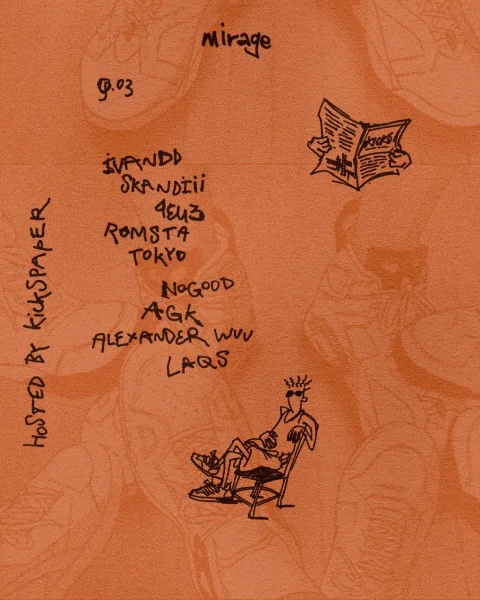 mirage
φ.03
KICKS
IVANDD
SKANDIII
4EU3
ROMSTA
TOKYO
NOGOOD
AGK
ALEXANDER WUU
LAQS
HOSTED BY KICKSPAPER